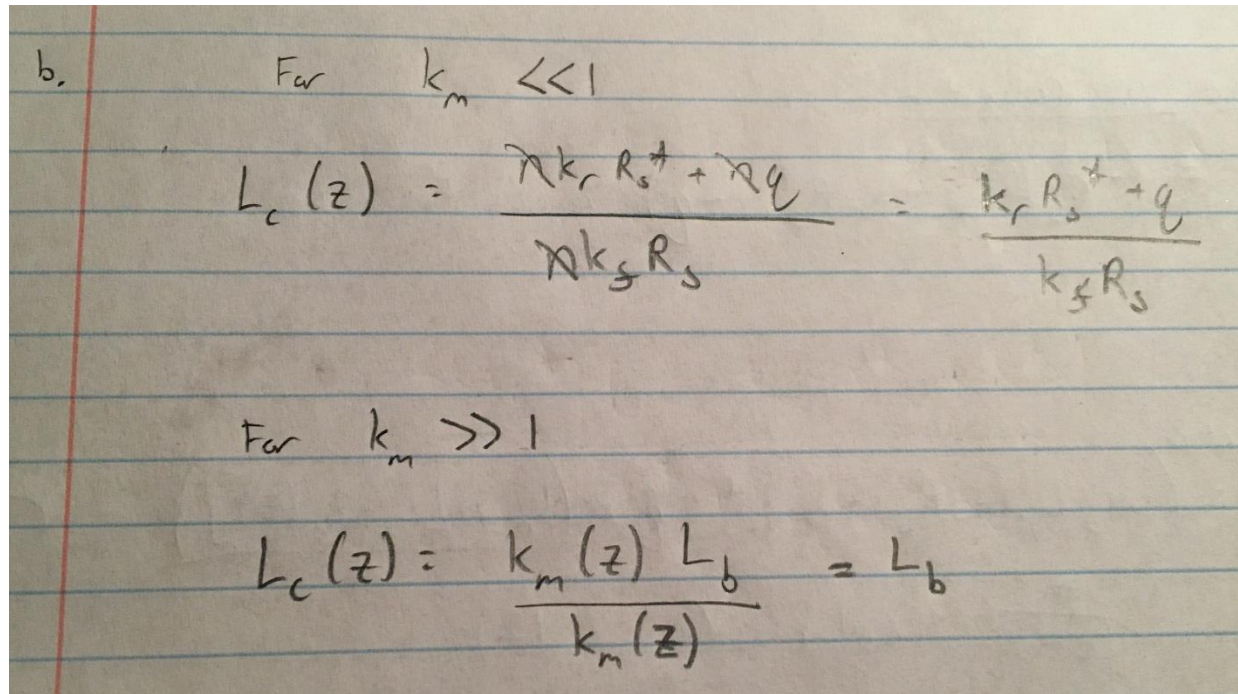 b. For k_m << 1
L_c (z) = (n k_r R_s^* + n q) / (n k_f R_s) = (k_r R_s^* + q) / (k_f R_s)
For k_m >> 1
L_c (z) = (k_m (z) L_b) / (k_m (z)) = L_b